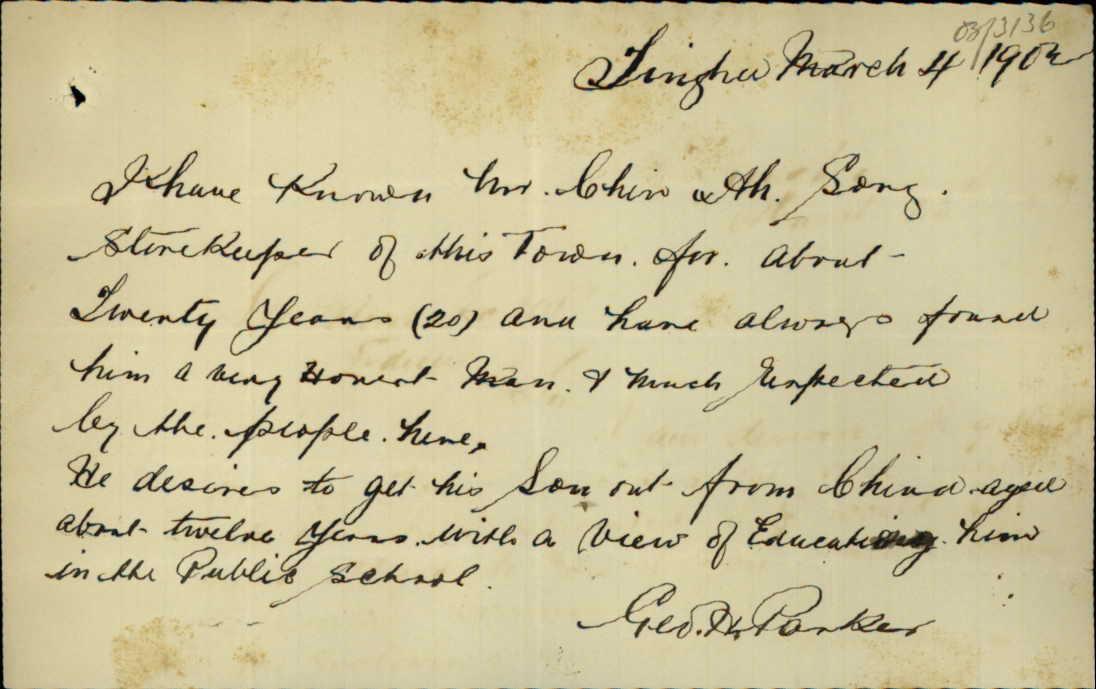 03/3136
Tingha March 4 /1903
I have Known Mr. Chin Ah. Song.
Storekeeper of this Town. for. about
Twenty Years (20) and have always found
him a very Honest Man. & much respected
by the. people. here,
He desires to get his Son out from China aged
about twelve years. with a view of Educating him
in the Public School.
Geo. H. Parker